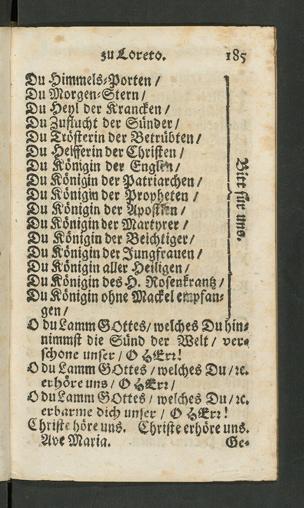 zu Loreto. 185
Du Himmels-Porten /
Du Morgen-Stern /
Du Heyl der Krancken /
Du Zuflucht der Sünder /
Du Trösterin der Betrübten /
Du Helfferin der Christen /
Du Königin der Englen /
Du Königin der Patriarchen /
Du Königin der Propheten /
Du Königin der Apostlen /
Du Königin der Martyrer /
Du Königin der Beichtiger /
Du Königin der Jungfrauen /
Du Königin aller Heiligen /
Du Königin des H. Rosenkrantz /
Du Königin ohne Mackel empfan-
gen /
Bitt für uns.
O du Lamm GOttes / welches Du hin-
nimmst die Sünd der Welt / ver-
schone unser / O HErr!
O du Lamm GOttes / welches Du / ꝛc.
erhöre uns / O HErr /
O du Lamm GOttes / welches Du / ꝛc.
erbarme dich unser / O HErr!
Christe höre uns. Christe erhöre uns.
Ave Maria. Ge-